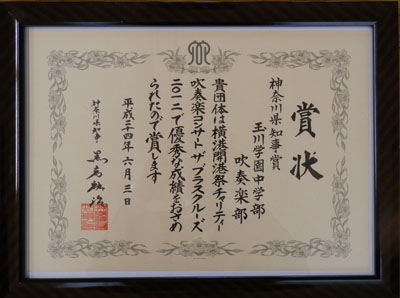 賞状
神奈川県知事賞
玉川学園中学部
吹奏楽部
貴団体は横浜開港祭チャリティー
吹奏楽コンサート ザ ブラスクルーズ
二〇一二で優秀な成績をおさめ
られたので賞します
平成二十四年六月三日
神奈川県知事 黒岩祐治